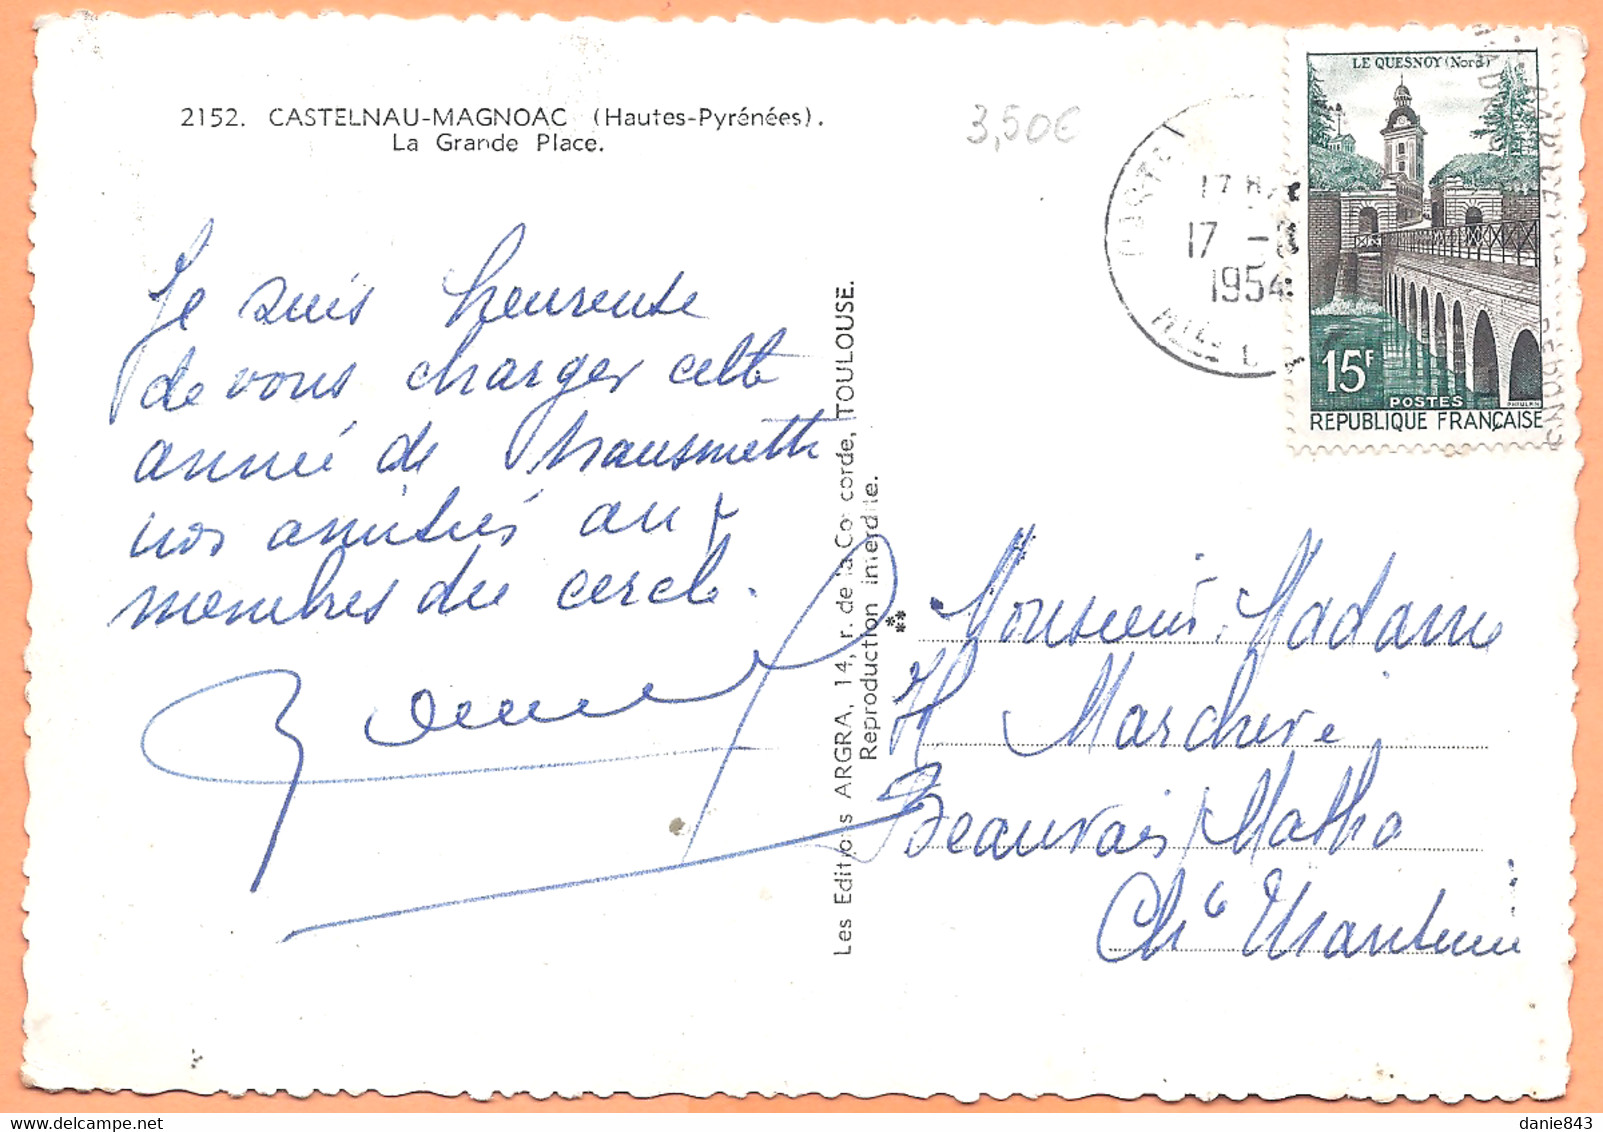 2152. CASTELNAU-MAGNOAC (Hautes-Pyrénées).
La Grande Place.
3,50€
Je suis heureuse
de vous charger cette
année de transmettre
nos amitiés aux
membres du cercle.
Les Editions ARGRA, 14, r. de la Concorde, TOULOUSE.
Reproduction interdite.
17 -8
1954
LE QUESNOY (Nord)
15F
POSTES
REPUBLIQUE FRANÇAISE
Monsieur, Madame
H Marchive
Beauvais / Matha
Ch te Maritime
danie843